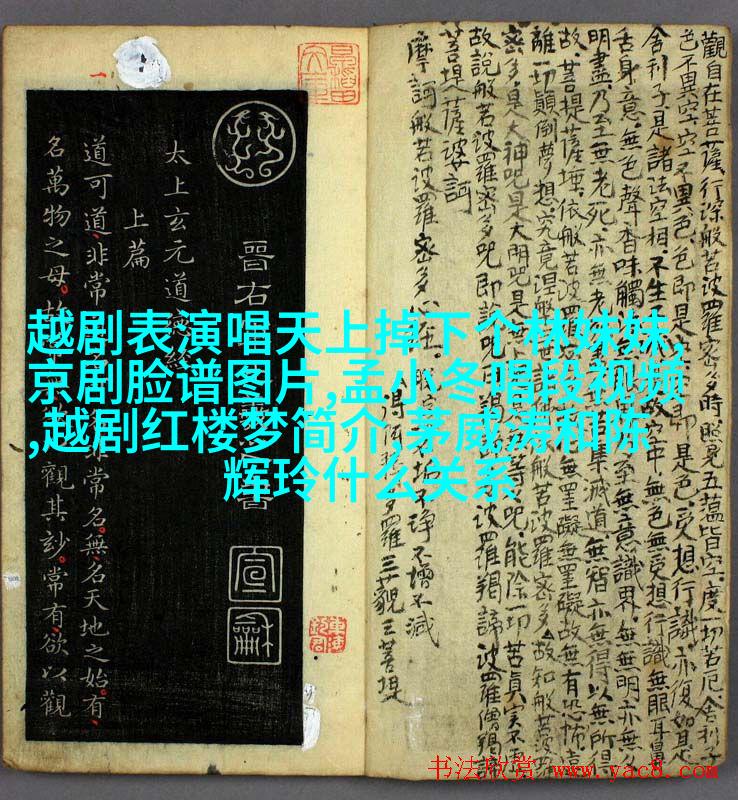 越剧表演唱天上掉下个林妹妹,
京剧脸谱图片,孟小冬唱段视频
,越剧红楼梦简介,茅威涛和陈
辉玲什么关系
觀自在菩薩行深般若波羅密多時照見五蘊皆空度一切苦厄舍利子
色不異空空不異色色即是空即是色受想行識亦復如是
舍利子是諸法空相不生故空中無色無受想行識無眼耳鼻
舌身意無色聲香味觸無意識界無無明亦無
明盡乃至無老死亦無老集滅道無智亦無得以無所得
故菩提薩埵依般若波羅無罣礙無罣礙故無有恐怖遠
離一切顛倒夢想究竟涅槃波羅密多故知般若波羅
密多是大神呪是大明呪是無等呪能除一切苦真實不虛
故說般若波羅密多呪即說呪波羅揭諦波羅僧揭諦
菩提薩婆訶
摩訶般若波羅密多心
垢不淨不增不減
得多羅三藐三菩提
晉右書
太上玄元道德經
上篇
道可道非常非常名無名天地之始有
名萬物之母觀其妙常有欲以觀
宣龢
书法欣赏 www.yac8.com